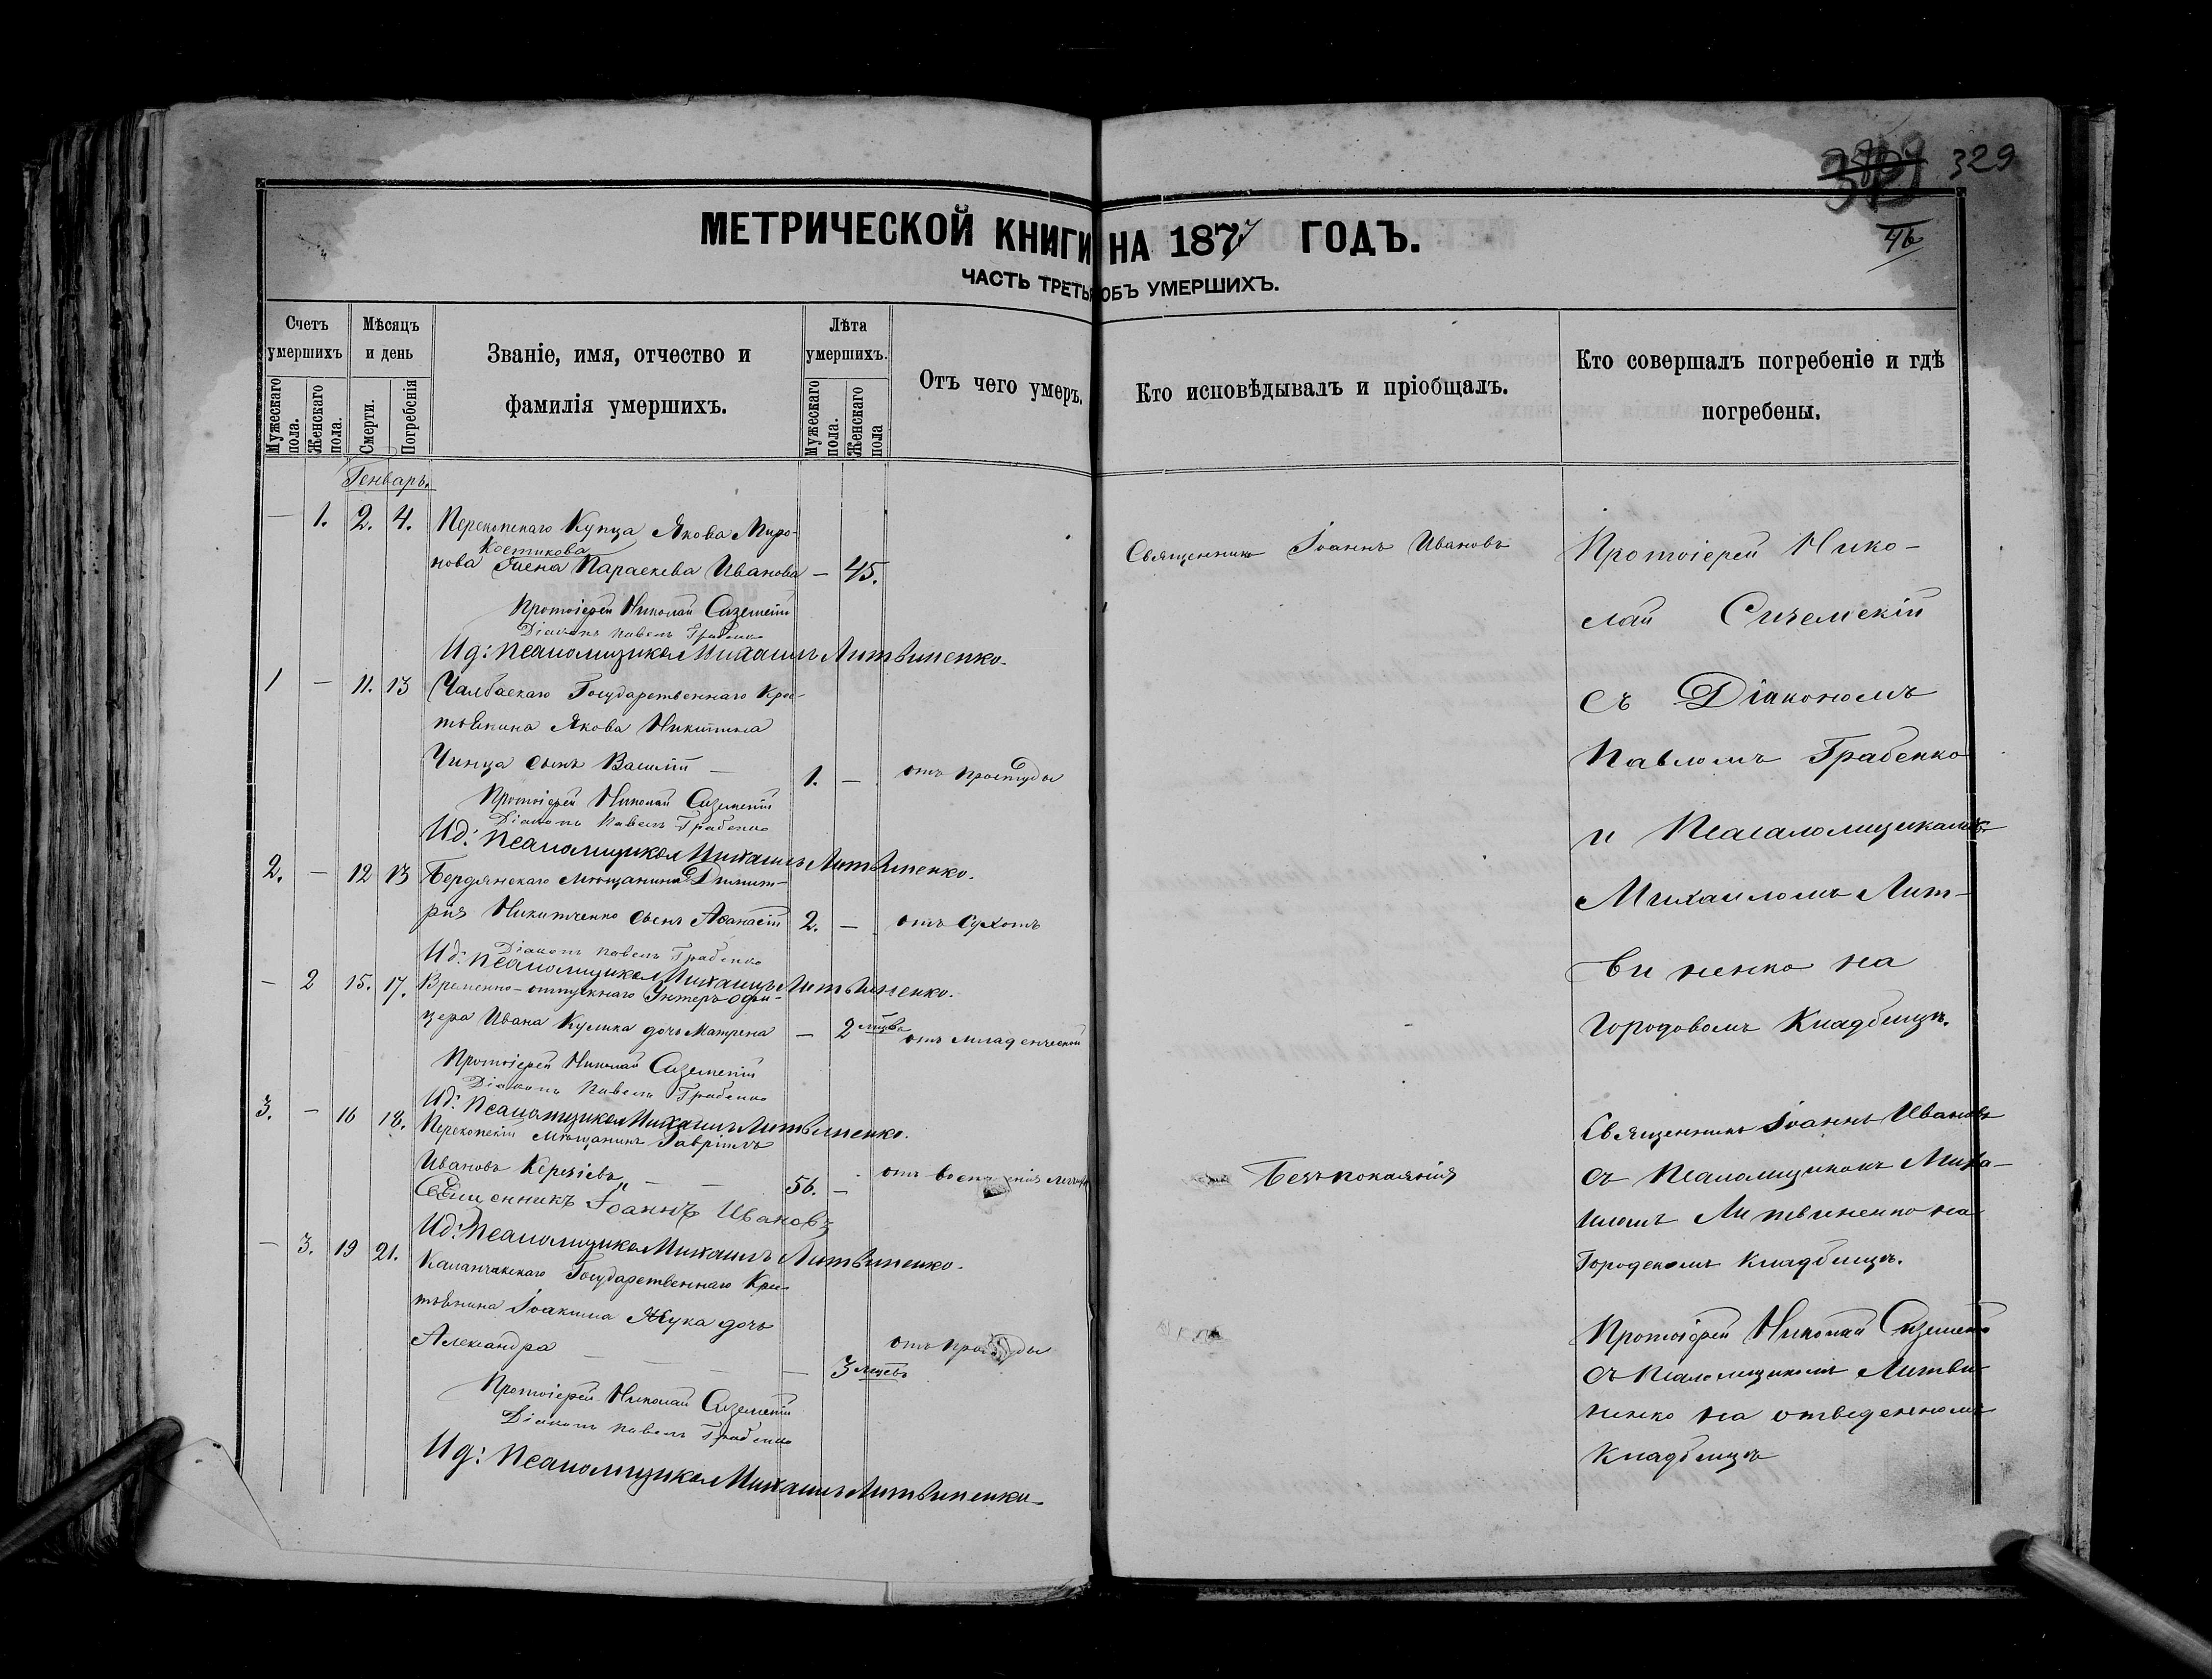 329
46
МЕТРИЧЕСКОЙ КНИГИ НА 1877 ГОДЪ.
ЧАСТЬ ТРЕТЬЯ ОБЪ УМЕРШИХЪ.
Счетъ умершихъ
Мужескаго пола.
Женскаго пола.
Мѣсяцъ и день
Смерти.
Погребенія
Званіе, имя, отчество и
фамилія умершихъ.
Лѣта умершихъ.
Мужескаго пола.
Женскаго пола
Отъ чего умеръ.
Кто исповѣдывалъ и пріобщалъ.
Кто совершалъ погребеніе и гдѣ
погребены.
Генварь.
— 1. 2. 4. Перекопскаго Купца Якова Миро-
Костикова
нова жена Параскева Иванова — 45.
Протоіерей Николай
Діаконъ Павелъ Грабенко
Ид: Псаломщика Михаилъ Литвиненко.
1 — 11. 13 Чалбаскаго Государственнаго Кре-
стьянина Якова Никитина
Чинца сынъ Василій — 1. — отъ простуды
Протоіерей Николай
Діаконъ Павелъ Грабенко
Ид: Псаломщика Михаилъ Литвиненко.
2. — 12 13 Бердянскаго мѣщанина Димит-
рія Никитченко сынъ Аѳанасій 2. — отъ сухотъ
Діаконъ Павелъ Грабенко
Ид: Псаломщика Михаилъ Литвиненко.
— 2 15. 17. Временно-отпускнаго Унтеръ-офи-
цера Ивана Кулика дочь Матрена — 2 мѣсва отъ младенческой
Протоіерей Николай
Діаконъ Павелъ Грабенко
Ид: Псаломщика Михаилъ Литвиненко.
3. — 16 18. Перекопскій мѣщанинъ Гавріилъ
Ивановъ — — 56. — отъ
Священникъ Іоаннъ Ивановъ
Ид: Псаломщика Михаилъ Литвиненко.
— 3. 19 21. Каланчакскаго Государственнаго Кре-
стьянина Іоакима Жука дочь
Александра — — — — 3 мѣсвъ отъ простуды
Протоіерей Николай
Діаконъ Павелъ Грабенко
Ид: Псаломщика Михаилъ Литвиненко
Священникъ Іоаннъ Ивановъ
Безъ покаянія
Протоіерей Нико-
лай
съ Діакономъ
Павломъ Грабенко
и Псаломщикомъ
Михаиломъ Лит-
виненко на
городовомъ Кладбищѣ.
Священникъ Іоаннъ Ивановъ
съ Псаломщикомъ Миха-
иломъ Литвиненко на
Городскомъ кладбищѣ.
Протоіерей Николай
съ Псаломщикомъ Литви-
ненко на отведенномъ
Кладбищѣ